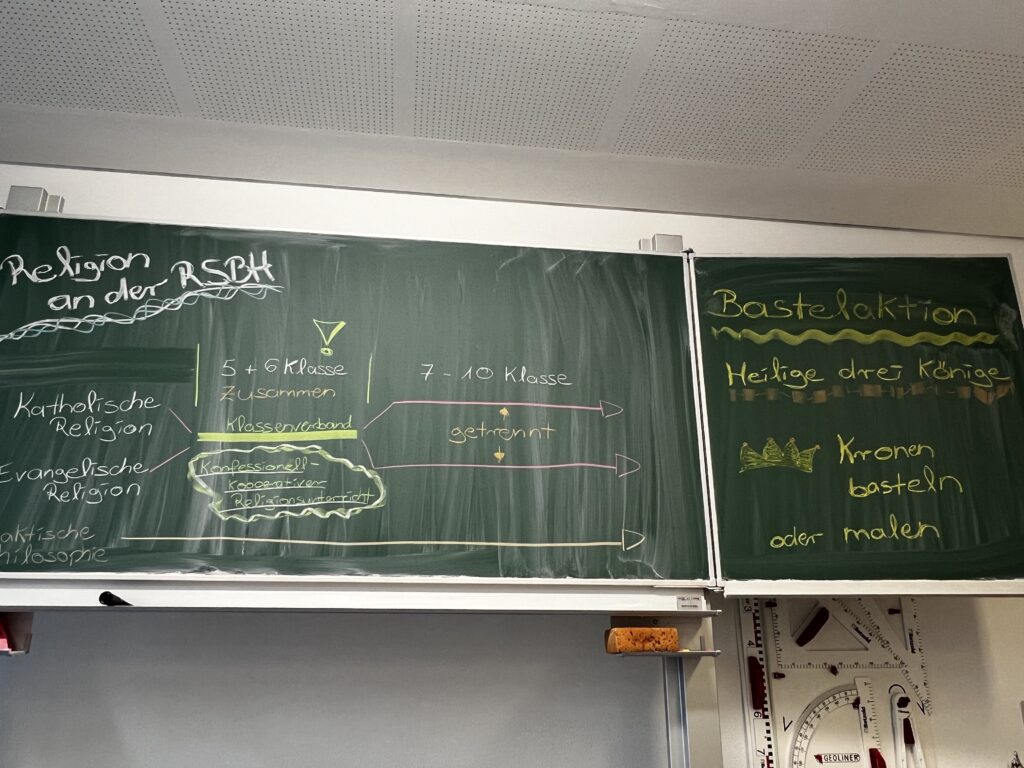 Religion
an der RSBH
5 + 6 Klasse
Zusammen
Klassenverband
Konfessionell-
kooperativer
Religionsunterricht
7 - 10 Klasse
getrennt
Katholische
Religion
Evangelische
Religion
aktische
hilosophie
Bastelaktion
Heilige drei Könige
Kronen
basteln
oder malen
GEOLINER